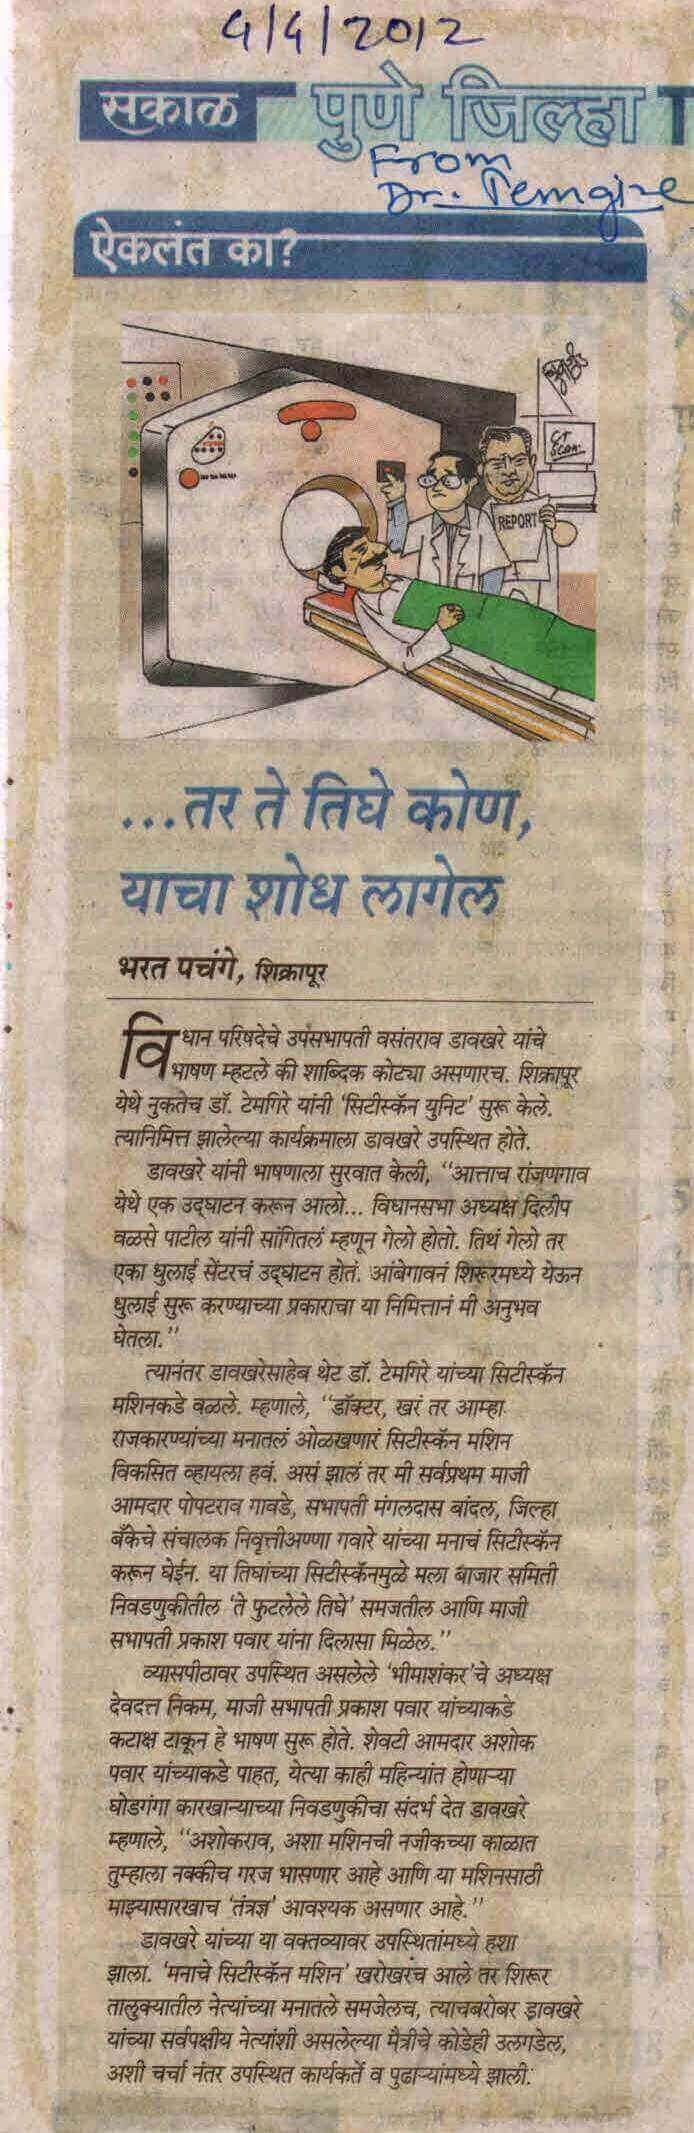 4/4/2012
सकाळ पुणे जिल्हा
From
Dr. Temgire
ऐकलंत का?
CT
Scan
REPORT
...तर ते तिघे कोण,
याचा शोध लागेल
भरत पचंगे, शिक्रापूर
विधान परिषदेचे उपसभापती वसंतराव डावखरे यांचे
भाषण म्हटले की शाब्दिक कोट्या असणारच. शिक्रापूर
येथे नुकतेच डॉ. टेमगिरे यांनी ‘सिटीस्कॅन युनिट’ सुरू केले.
त्यानिमित्त झालेल्या कार्यक्रमाला डावखरे उपस्थित होते.
डावखरे यांनी भाषणाला सुरवात केली, ‘‘आत्ताच रांजणगाव
येथे एक उद्‌घाटन करून आलो... विधानसभा अध्यक्ष दिलीप
वळसे पाटील यांनी सांगितलं म्हणून गेलो होतो. तिथं गेलो तर
एका धुलाई सेंटरचं उद्‌घाटन होतं. आंबेगावनं शिरूरमध्ये येऊन
धुलाई सुरू करण्याच्या प्रकाराचा या निमित्तानं मी अनुभव
घेतला.’’
त्यानंतर डावखरेसाहेब थेट डॉ. टेमगिरे यांच्या सिटीस्कॅन
मशिनकडे वळले. म्हणाले, ‘‘डॉक्टर, खरं तर आम्हा
राजकारण्यांच्या मनातलं ओळखणारं सिटीस्कॅन मशिन
विकसित व्हायला हवं. असं झालं तर मी सर्वप्रथम माजी
आमदार पोपटराव गावडे, सभापती मंगलदास बांदल, जिल्हा
बँकेचे संचालक निवृत्तीअण्णा गवारे यांच्या मनाचं सिटीस्कॅन
करून घेईन. या तिघांच्या सिटीस्कॅनमुळे मला बाजार समिती
निवडणुकीतील ‘ते फुटलेले तिघे’ समजतील आणि माजी
सभापती प्रकाश पवार यांना दिलासा मिळेल.’’
व्यासपीठावर उपस्थित असलेले ‘भीमाशंकर’चे अध्यक्ष
देवदत्त निकम, माजी सभापती प्रकाश पवार यांच्याकडे
कटाक्ष टाकून हे भाषण सुरू होते. शेवटी आमदार अशोक
पवार यांच्याकडे पाहत, येत्या काही महिन्यांत होणाऱ्या
घोडगंगा कारखान्याच्या निवडणुकीचा संदर्भ देत डावखरे
म्हणाले, ‘‘अशोकराव, अशा मशिनची नजीकच्या काळात
तुम्हाला नक्कीच गरज भासणार आहे आणि या मशिनसाठी
माझ्यासारखाच ‘तंत्रज्ञ’ आवश्यक असणार आहे.’’
डावखरे यांच्या या वक्तव्यावर उपस्थितांमध्ये हशा
झाला. ‘मनाचे सिटीस्कॅन मशिन’ खरोखरच आले तर शिरूर
तालुक्यातील नेत्यांच्या मनातले समजेलच, त्याचबरोबर डावखरे
यांच्या सर्वपक्षीय नेत्यांशी असलेल्या मैत्रीचे कोडेही उलगडेल,
अशी चर्चा नंतर उपस्थित कार्यकर्ते व पुढाऱ्यांमध्ये झाली.